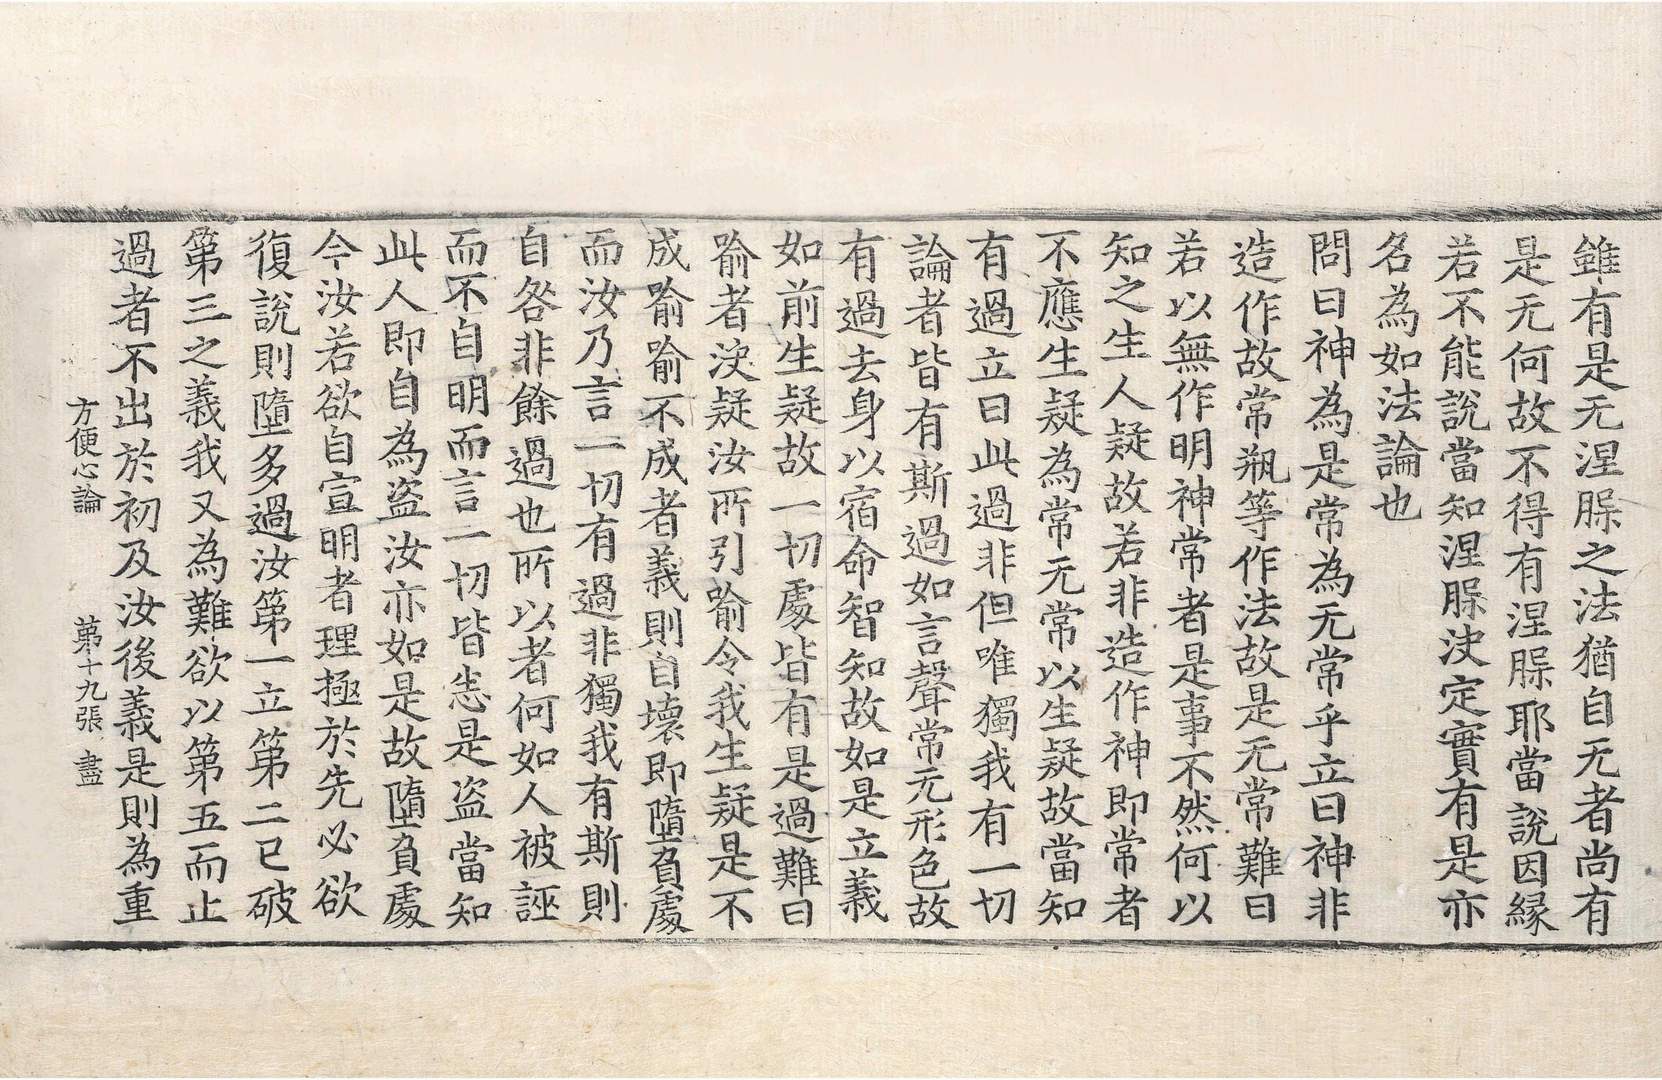 雖有是无涅脲之法猶自无者尚有
是无何故不得有涅脲耶當說因縁
若不能說當知涅脲决定實有是亦
名為如法論也
問曰神為是常為无常乎立曰神非
造作故常瓶等作法故是无常難曰
若以無作明神常者是事不然何以
知之生人疑故若非造作神即常者
不應生疑為常无常以生疑故當知
有過立曰此過非但唯獨我有一切
論者皆有斯過如言聲常无形色故
有過去身以宿命智知故如是立義
如前生疑故一切處皆有是過難曰
喻者决疑汝所引喻令我生疑是不
成喻喻不成者義則自壞即墮負處
而汝乃言一切有過非獨我有斯則
自咎非餘過也所以者何如人被誣
而不自明而言一切皆恙是盜當知
此人即自為盜汝亦如是故墮負處
今汝若欲自宣明者理極於先必欲
復說則墮多過汝第一立第二已破
第三之義我又為難欲以第五而止
過者不出於初及汝後義是則為重
方便心論 第十九張 盡